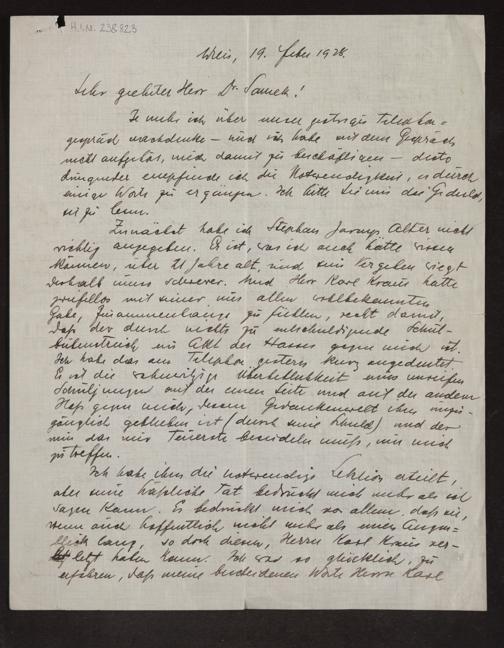 H.I.N. 238823
Wien, 19. Feber 1928.
Sehr geehrter Herr Dr. Samek!
Je mehr ich über unser gestriges Telephon-
gespräch nachdenke – und ich habe seit dem Gespräch
nicht aufgehört, mich damit zu beschäftigen – desto
dringender empfinde ich die Notwendigkeit, es durch
einige Worte zu ergänzen. Ich bitte Sie um die Geduld,
sie zu lesen.
Zunächst habe ich Stephan Alter nicht
richtig angegeben. Er ist, was ich auch hätte wissen
können, über 11 Jahre alt, und sein Vergehen wiegt
deshalb umso schwerer. Und Herr Karl Kraus hatte
zweifellos mit seiner, uns allen wohlbekannten
Gabe, Zusammenhänge zu fühlen, recht damit,
daß der durch nichts zu entschuldigende Schul-
bubenstreich ein Akt des Hasses gegen mich ist.
Ich habe das am Telephon gestern kurz angedeutet.
Es ist die Überheblichkeit eines unreifen
Schuljungen auf der einen Seite und auf der andern
Haß gegen mich, dessen Gedankenwelt ihm unzu-
gänglich geblieben ist (durch seine Schuld) und der
nun das mir Teuerste besudeln muß, um mich
zu treffen.
Ich habe ihm die notwendige Lektion erteilt,
aber seine häßliche Tat bedrückt mich mehr als ich
sagen kann. Es bedrückt mich vor allem, daß sie,
wenn auch hoffentlich nicht mehr als einen Augen-
blick lang, so doch diesen, Herrn Karl Kraus ver-
letzt haben kann. Ich war so glücklich, zu
erfahren, daß meine bescheidenen Worte Herrn Karl